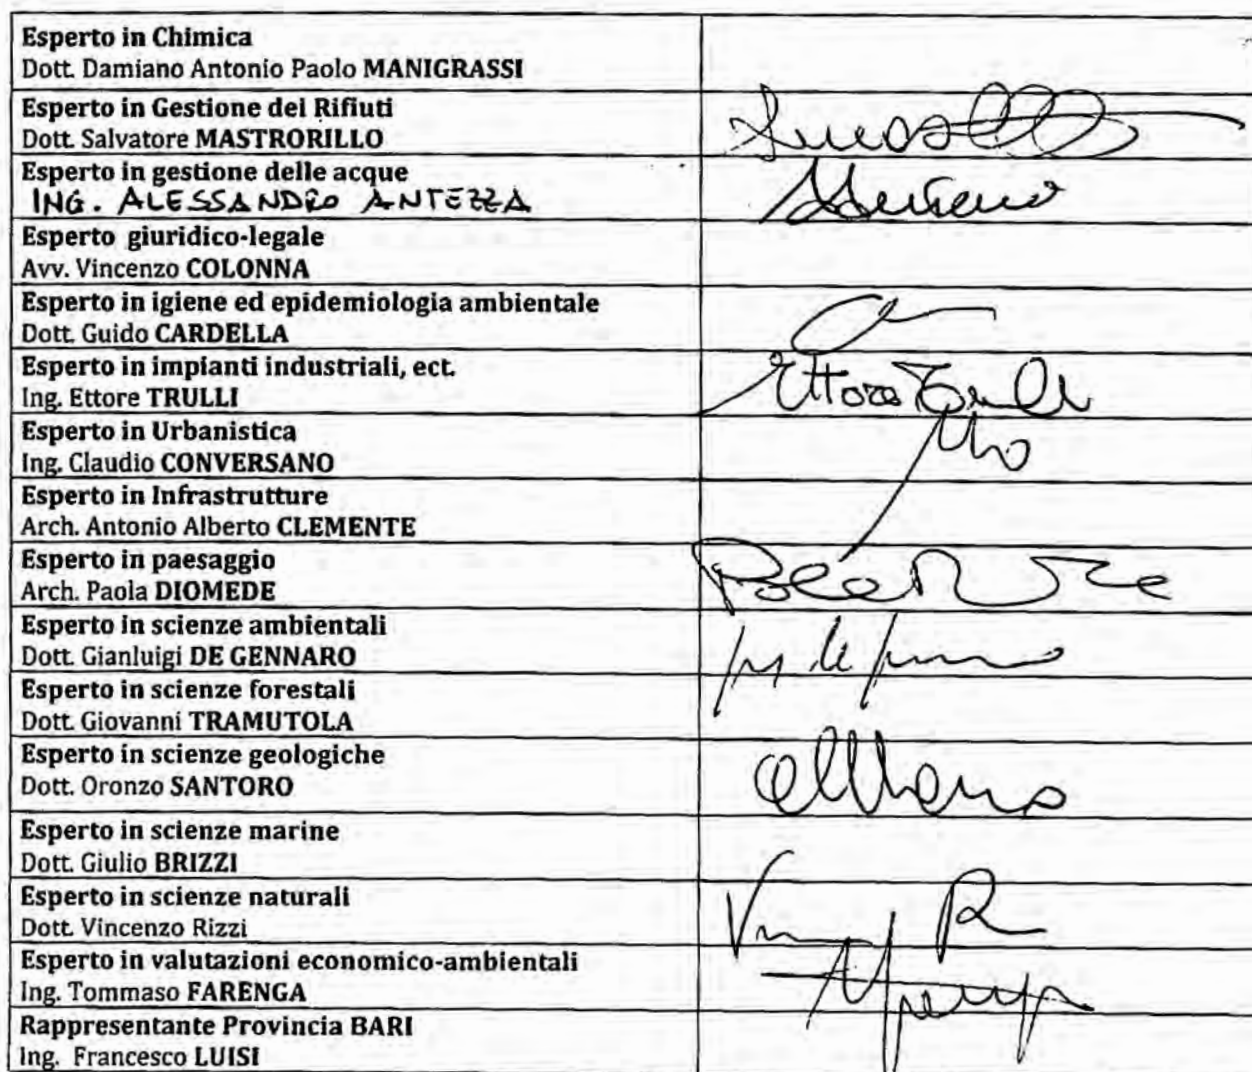 Esperto in Chimica
Dott. Damiano Antonio Paolo MANIGRASSI
Esperto in Gestione dei Rifiuti
Dott. Salvatore MASTRORILLO
Esperto in gestione delle acque
ING. ALESSANDRO ANTEZZA
Esperto giuridico-legale
Avv. Vincenzo COLONNA
Esperto in igiene ed epidemiologia ambientale
Dott. Guido CARDELLA
Esperto in impianti industriali, ect.
Ing. Ettore TRULLI
Ettore Trulli
Esperto in Urbanistica
Ing. Claudio CONVERSANO
Esperto in Infrastrutture
Arch. Antonio Alberto CLEMENTE
Esperto in paesaggio
Arch. Paola DIOMEDE
Esperto in scienze ambientali
Dott. Gianluigi DE GENNARO
Esperto in scienze forestali
Dott. Giovanni TRAMUTOLA
Esperto in scienze geologiche
Dott. Oronzo SANTORO
Esperto in scienze marine
Dott. Giulio BRIZZI
Esperto in scienze naturali
Dott. Vincenzo Rizzi
Esperto in valutazioni economico-ambientali
Ing. Tommaso FARENGA
Rappresentante Provincia BARI
Ing. Francesco LUISI